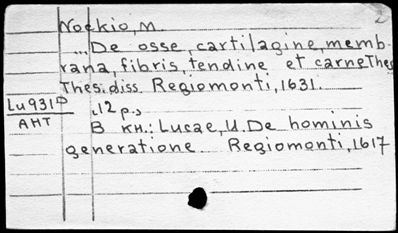 2
Noekio, M.
... De osse, cartilagine, memb-
rana, fibris, tendine et carne Thes
Thes. diss. Regiomonti, 1631.
Lu931D
12 p.,
AHT
В кн.: Lucae, U. De hominis
generatione Regiomonti, 1617